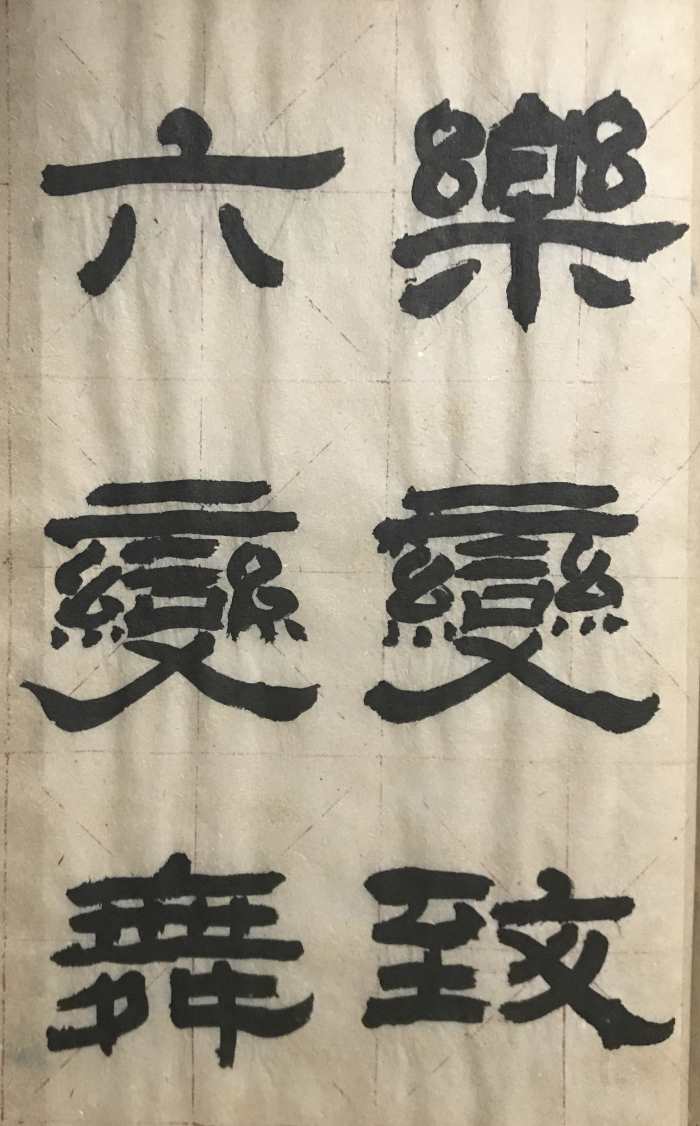 樂變致
六變舞